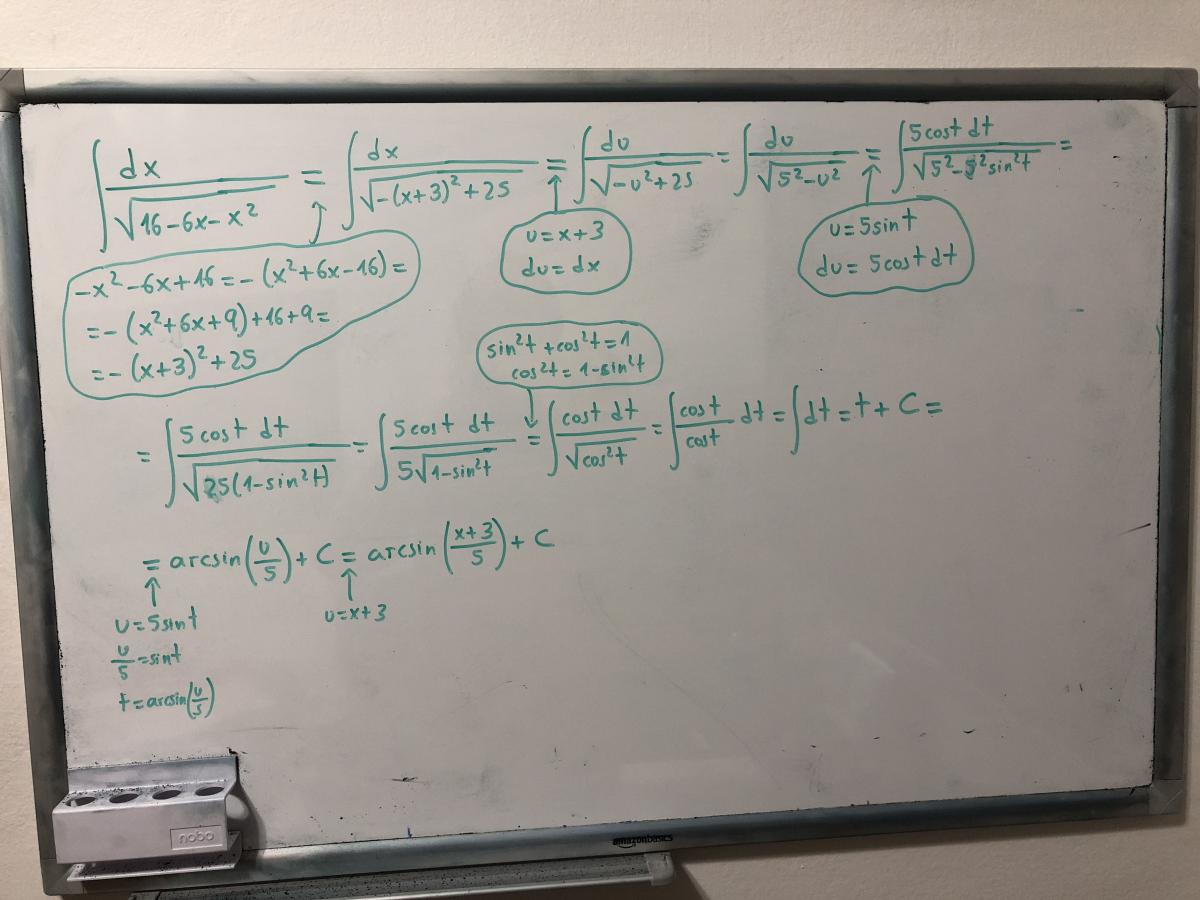 ∫ dx/√(16-6x-x²) = ∫ dx/√(-(x+3)²+25) = ∫ du/√(-u²+25) = ∫ du/√(5²-u²) = ∫ 5cost dt/√(5²-5²sin²t) =
-x²-6x+16=-(x²+6x-16)=
=-(x²+6x+9)+16+9=
=-(x+3)²+25
u=x+3
du=dx
u=5sint
du=5cost dt
sin²t+cos²t=1
cos²t=1-sin²t
= ∫ 5cost dt/√(25(1-sin²t)) = ∫ 5cost dt/5√(1-sin²t) = ∫ cost dt/√(cos²t) = ∫ cost/cost dt = ∫ dt = t + C =
= arcsin(u/5) + C = arcsin((x+3)/5) + C
u=5sint
u/5=sint
t=arcsin(u/5)
u=x+3
nobo
amazonbasics